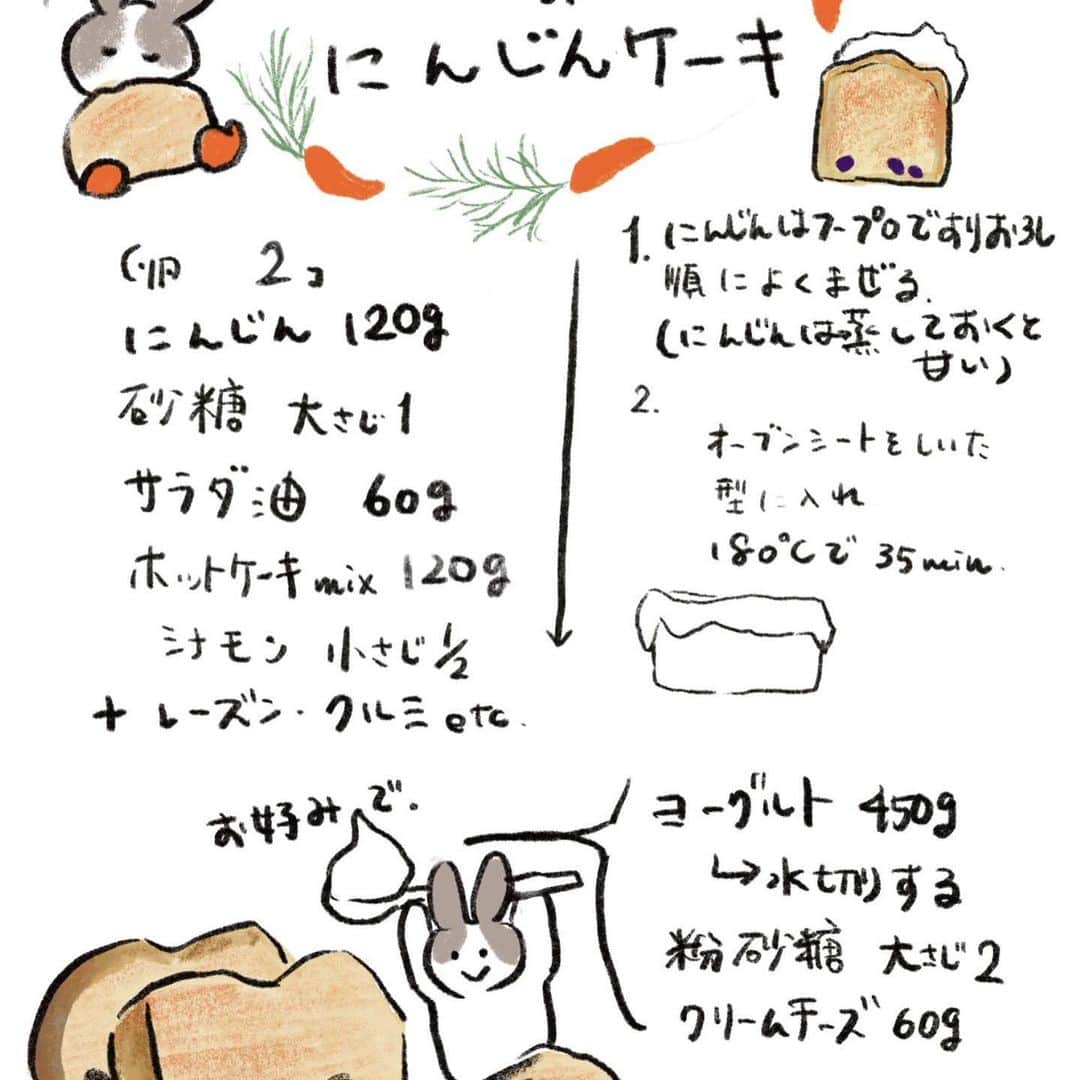 にんじんケーキ
卵 2コ
にんじん 120g
砂糖 大さじ1
サラダ油 60g
ホットケーキmix 120g
シナモン 小さじ1/2
+ レーズン・クルミetc.
1. にんじんはフープロですりおろし
順によくまぜる.
(にんじんは蒸しておくと
甘い)
2.
オーブンシートをしいた
型に入れ
180℃で 35min.
お好みで.
ヨーグルト 450g
↳水切りする
粉砂糖 大さじ2
クリームチーズ 60g